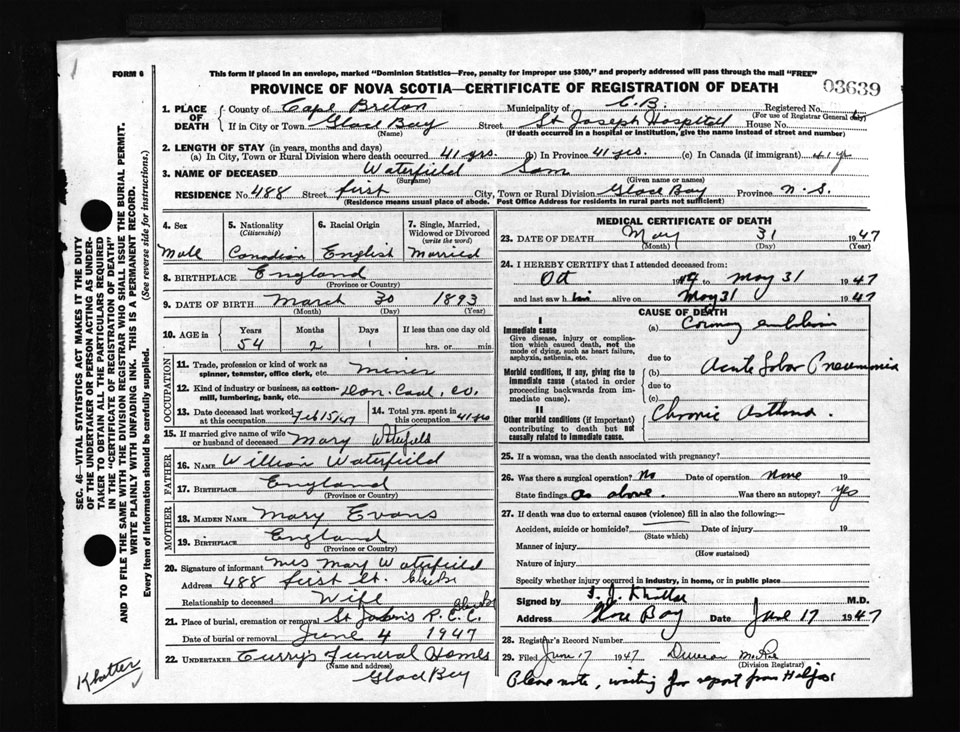 FORM 6
This form if placed in an envelope, marked "Dominion Statistics—Free, penalty for improper use $300," and properly addressed will pass through the mail "FREE"
PROVINCE OF NOVA SCOTIA—CERTIFICATE OF REGISTRATION OF DEATH
03639
1. PLACE OF DEATH
County of Cape Breton Municipality of C.B. Registered No.
(For use of Registrar General only)
If in City or Town Glace Bay Street St Joseph Hospital House No.
(Name) (If death occurred in a hospital or institution, give the name instead of street and number)
2. LENGTH OF STAY (in years, months and days)
(a) In City, Town or Rural Division where death occurred 41 yrs. (b) In Province 41 yrs. (c) In Canada (if immigrant) 41 yr
3. NAME OF DECEASED Waterfield Sam
(Surname) (Given name or names)
RESIDENCE No. 488 Street first City, Town or Rural Division Glace Bay Province N.S.
(Residence means usual place of abode. Post Office Address for residents in rural parts not sufficient)
4. Sex
Male
5. Nationality
(Citizenship)
Canadian
6. Racial Origin
English
7. Single, Married, Widowed or Divorced
(write the word)
Married
8. BIRTHPLACE England
(Province or Country)
9. DATE OF BIRTH March 30 1893
(Month) (Day) (Year)
10. AGE in
Years Months Days If less than one day old
54 2 1 hrs. or min.
OCCUPATION
11. Trade, profession or kind of work as spinner, teamster, office clerk, etc. miner
12. Kind of industry or business, as cotton-mill, lumbering, bank, etc. Dom. Coal, Co.
13. Date deceased last worked at this occupation Feb 15/47
14. Total yrs. spent in this occupation 41 yrs
15. If married give name of wife or husband of deceased Mary Waterfield
FATHER
16. NAME William Waterfield
17. BIRTHPLACE England
(Province or Country)
MOTHER
18. MAIDEN NAME Mary Evans
19. BIRTHPLACE England
(Province or Country)
20. Signature of informant Mrs Mary Waterfield
Address 488 first St.
Relationship to deceased Wife
21. Place of burial, cremation or removal St R.C.C.
Date of burial or removal June 4 1947
22. UNDERTAKER Curry's Funeral Homes
(Name and address)
Glace Bay
MEDICAL CERTIFICATE OF DEATH
23. DATE OF DEATH May 31 1947
(Month) (Day) (Year)
24. I HEREBY CERTIFY that I attended deceased from:
Oct to May 31 1947
and last saw him alive on May 31 1947
CAUSE OF DEATH
I
Immediate cause
Give disease, injury or complication which caused death, not the mode of dying, such as heart failure, asphyxia, asthenia, etc.
(a) embolism
due to
Morbid conditions, if any, giving rise to immediate cause (stated in order proceeding backwards from immediate cause).
(b) Acute Lobar Pneumonia
due to
(c)
II
Other morbid conditions (if important) contributing to death but not causally related to immediate cause.
Chronic Asthma.
25. If a woman, was the death associated with pregnancy?
26. Was there a surgical operation? No Date of operation none 19
State findings as above. Was there an autopsy? Yes
27. If death was due to external causes (violence) fill in also the following:—
Accident, suicide or homicide? Date of injury 19
(State which)
Manner of injury
(How sustained)
Nature of injury
Specify whether injury occurred in industry, in home, or in public place
Signed by Khattar M.D.
Address Glace Bay Date June 17 1947
28. Registrar's Record Number
29. Filed June 17 1947 Duncan
(Division Registrar)
Please note, waiting for report from Halifax
Khattar
SEC. 46—VITAL STATISTICS ACT MAKES IT THE DUTY
OF THE UNDERTAKER OR PERSON ACTING AS UNDER-
TAKER TO OBTAIN ALL THE PARTICULARS REQUIRED
IN THE "CERTIFICATE OF REGISTRATION OF DEATH"
AND TO FILE THE SAME WITH THE DIVISION REGISTRAR WHO SHALL ISSUE THE BURIAL PERMIT.
WRITE PLAINLY WITH UNFADING INK. THIS IS A PERMANENT RECORD.
Every item of Information should be carefully supplied. (See reverse side for instructions.)